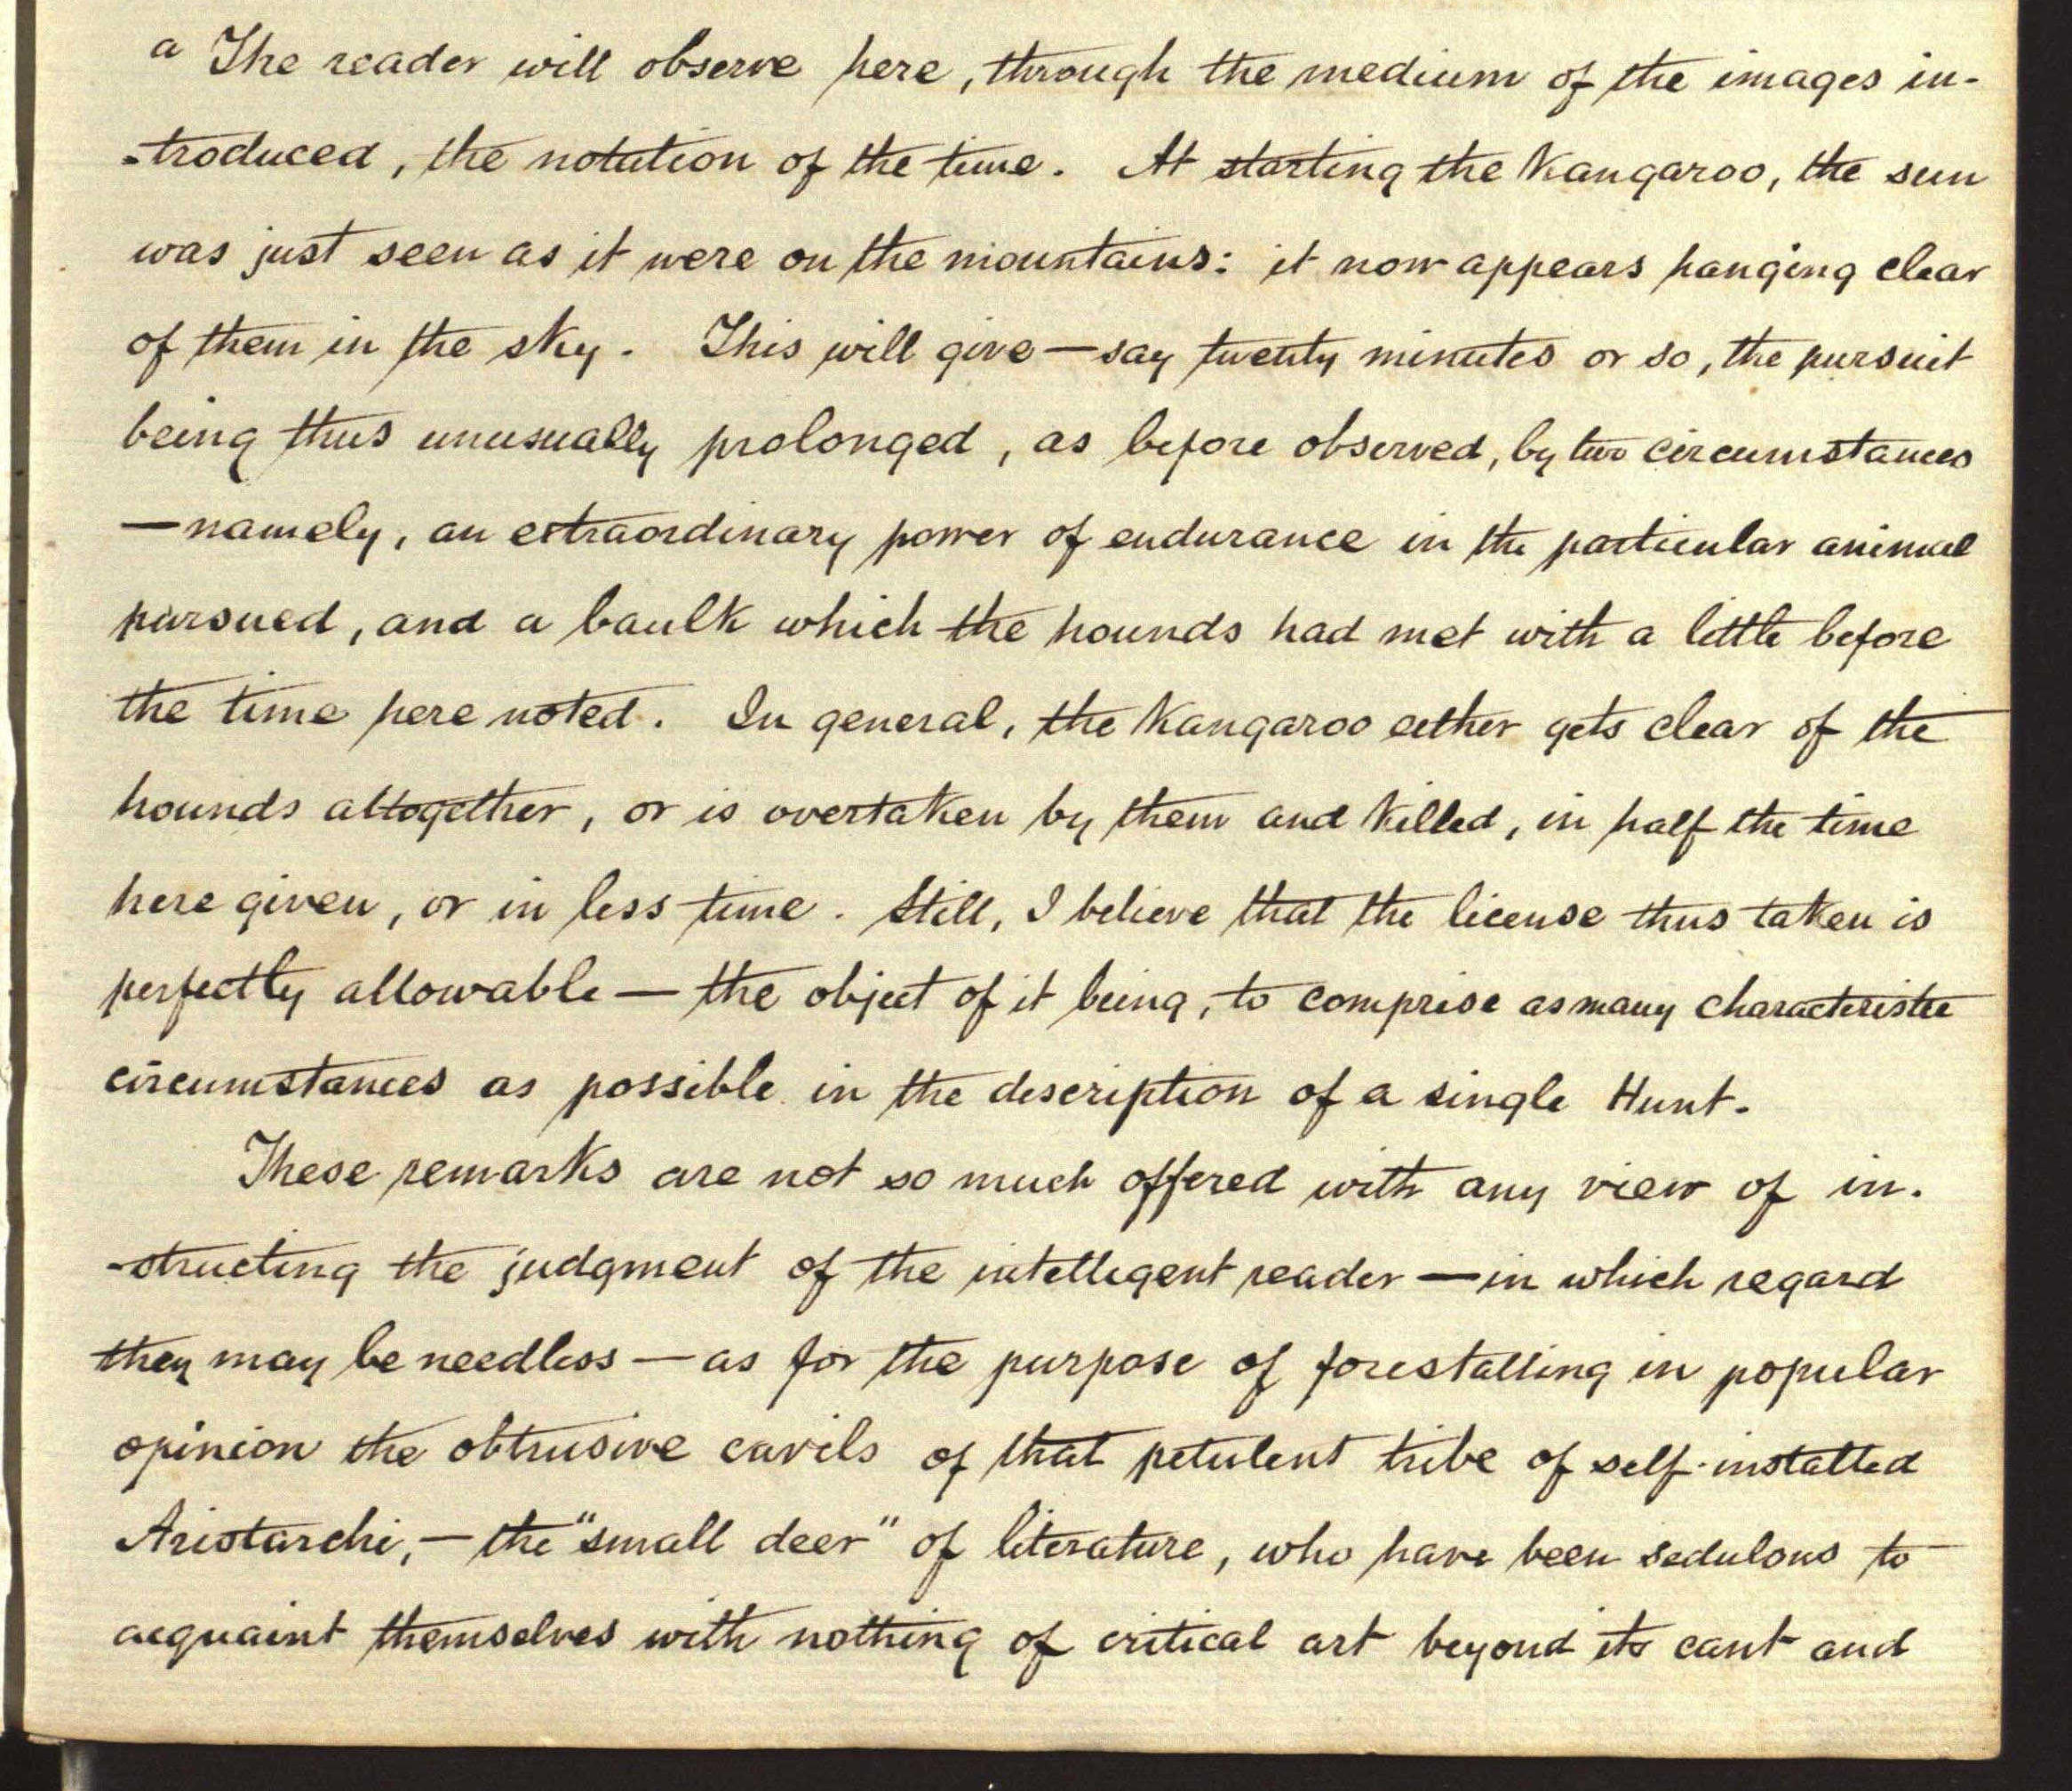 a The reader will observe here, through the medium of the images in-
-troduced, the notation of the time. At starting the Kangaroo, the sun
was just seen as it were on the mountains: it now appears hanging clear
of them in the sky. This will give — say twenty minutes or so, the pursuit
being thus unusually prolonged, as before observed, by two circumstances
— namely, an extraordinary power of endurance in the particular animal
pursued, and a baulk which the hounds had met with a little before
the time here noted. In general, the Kangaroo either gets clear of the
hounds altogether, or is overtaken by them and killed, in half the time
here given, or in less time. Still, I believe that the license thus taken is
perfectly allowable — the object of it being, to comprise as many characteristic
circumstances as possible in the description of a single Hunt.
These remarks are not so much offered with any view of in-
-structing the judgment of the intelligent reader — in which regard
they may be needless — as for the purpose of forestalling in popular
opinion the obtrusive cavils of that petulent tribe of self-installed
Aristarchi, — the "small deer" of literature, who have been sedulous to
acquaint themselves with nothing of critical art beyond its cant and